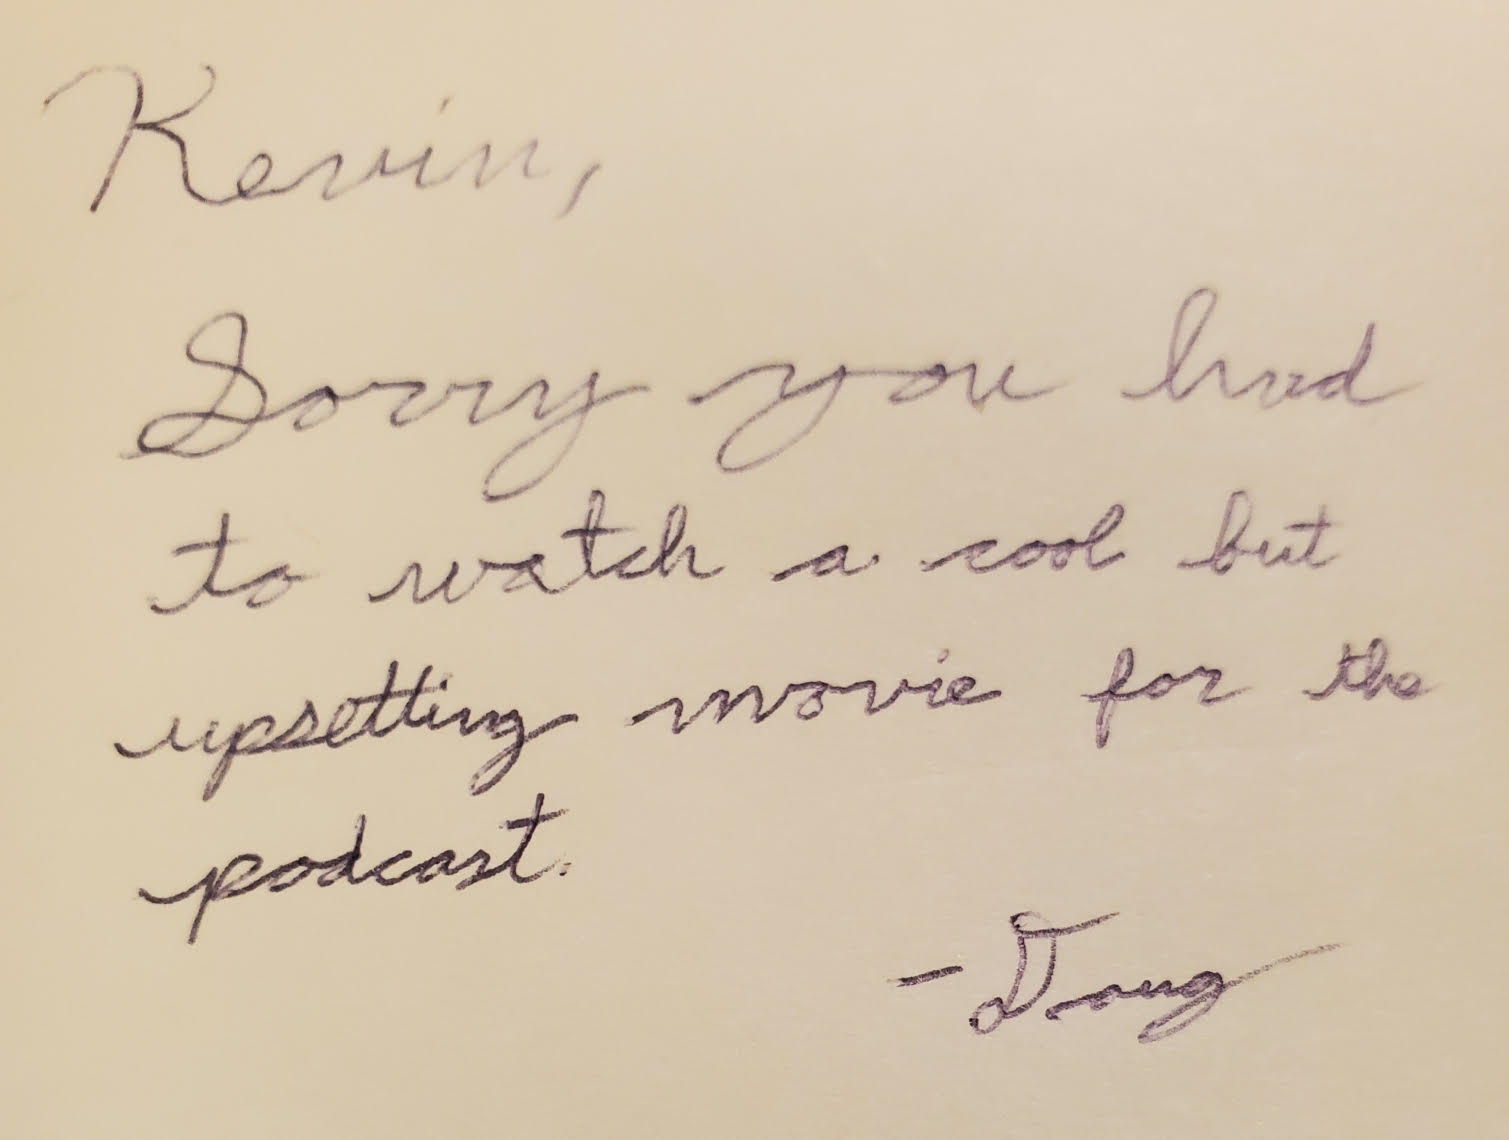 Kevin,
Sorry you had
to watch a cool but
upsetting movie for the
podcast.
- Doug